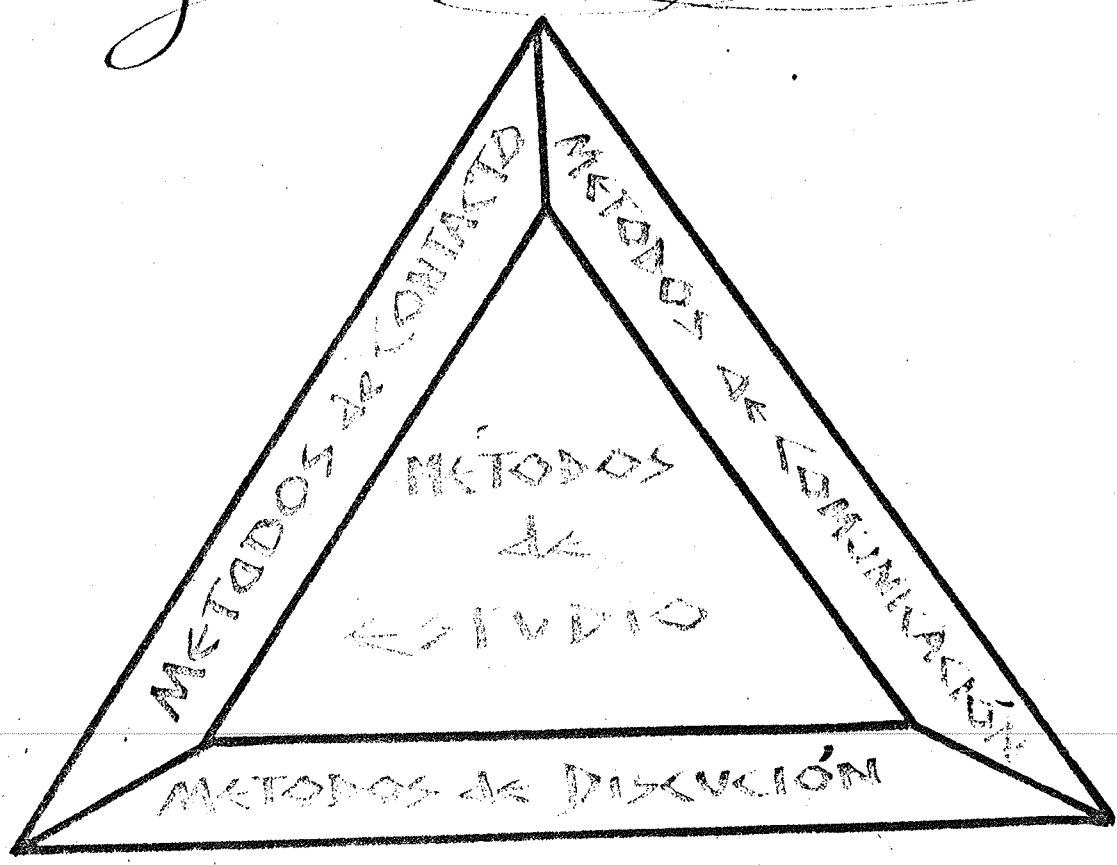 METODOS de CONTACTO
METODOS de COMUNICACIÓN
MÉTODOS
de
ESTUDIO
METODOS de DISCUCIÓN